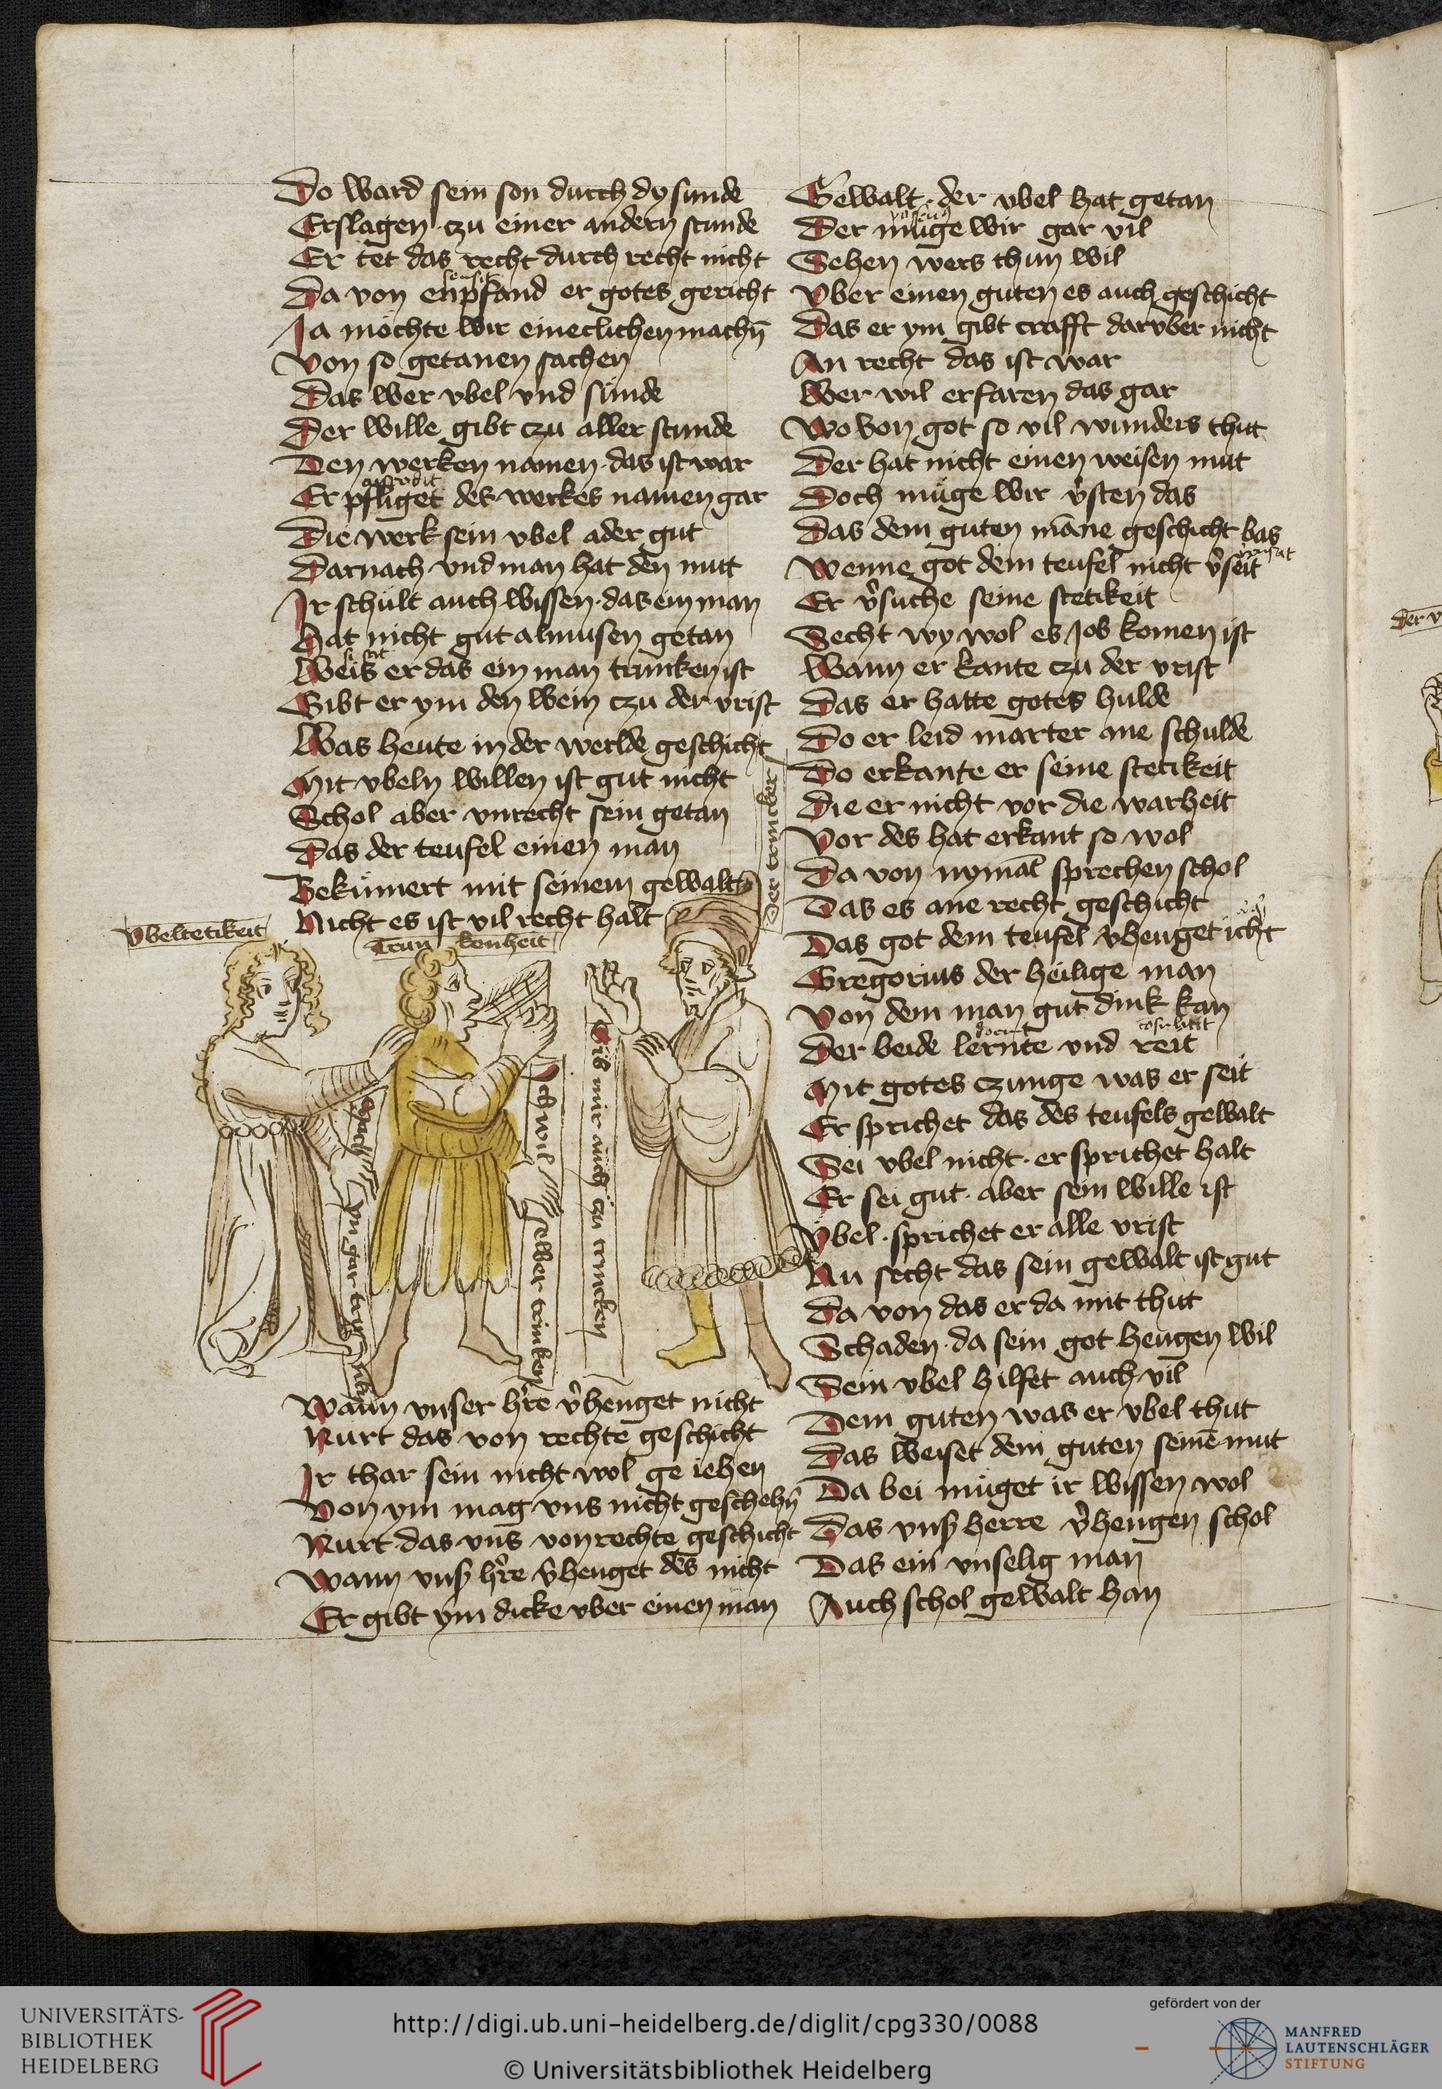 Do ward sein son durch dy sunde
Erslagen czu einer andern stunde
Er tet das recht durch recht nicht
Da von enpfand er gotes gericht
Ja mochte wir eineclichen machn̄
Von so getanen sachen
Das wer vbel vnd sunde
Der wille gibt czu aller stunde
Den werken namen · das ist war
Er pfliget des werkes namen gar
Die werk sein vbel ader gut
Darnach vnd man hat den mut
Ir schult auch wissen · das ein man
Hat nicht gut almusen getan
Weis er das ein man trunken ist
Gibt er ym den wein czu der vrist
Was heute in der werlde geschicht
Mit vbeln willen ist gut nicht
Schol aber vnrecht sein getan
Das der teufel einen man
Bekumert mit seinem gewalt
Nicht es ist vil recht halt
Vbeltetikeit
Trunkenheit
Der trincker
Mach yn gar trunken
Ich wil selber trinken
Gib mir auch czu trincken
Wann vnser hr̄e v̄henget nicht
Nurt das von rechte geschicht
Ir thar sein nicht wol ge iehen
Von ym mag vns nicht geschehn̄
Nurt das vns von rechte geschicht
Wann vnsꝫ hr̄e v̄henget des nicht
Er gibt ym dicke vber einen man
Gewalt · der vbel hat getan
Der muge wir gar vil
Sehen wers thun wil
Vber einen guten es auch geschicht
Das er ym gibt crafft daruber nicht
An recht das ist war
Wer wil erfaren das gar
Wo von got so vil wunders thut
Der hat nicht einen weisen mut
Doch muge wir v̄sten das
Das dem guten māne geschicht bas
Wenne got dem teufel nicht v̄seit
Er v̄suche seine stetikeit
Secht wy wol es Job komen ist
Wann er kante czu der vrist
Das er hatte gotes hulde
Do er leid marter ane schulde
Do erkante er seine stetikeit
Die er nicht vor die warheit
Vor des hat erkant so wol
Da von nymāt sprechen schol
Das es ane recht geschicht
Das got dem teufel v̄henget icht
Gregorius der heilige man
Von dem man gut dink kan
Der beide lernte vnd reit
Mit gotes czunge was er seit
Er sprichet das des teufels gewalt
Sei vbel nicht · er sprichet halt
Er sei gut · aber sein wille ist
Vbel · sprichet er alle vrist
Nu secht das sein gewalt ist gut
Da von das er da mit thut
Schaden · da sein got hengen wil
Sein vbel hilfet auch vil
Dem guten was er vbel thut
Das weiset dem guten seinē mut
Da bei muget ir wissen wol
Das vnsꝫ herre v̄hengen schol
Das ein vnselig man
Auch schol gewalt han
UNIVERSITÄTS-
BIBLIOTHEK
HEIDELBERG
http://digi.ub.uni-heidelberg.de/diglit/cpg330/0088
© Universitätsbibliothek Heidelberg
gefördert von der
MANFRED
LAUTENSCHLÄGER
STIFTUNG